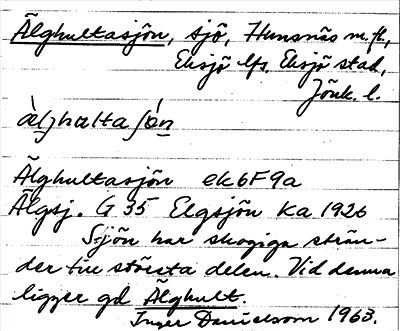 Älghultasjön, sjö, Hunsnäs m. fl.,
Eksjö lfs. Eksjö stad,
Jönk. l.
Älghultasjön ek6F9a
Älgsj. G 35 Elgsjön Ka 1926
Sjön har skogiga strän-
der till största delen. Vid denna
ligger gd Älghult.
Inger Danielsson 1963.